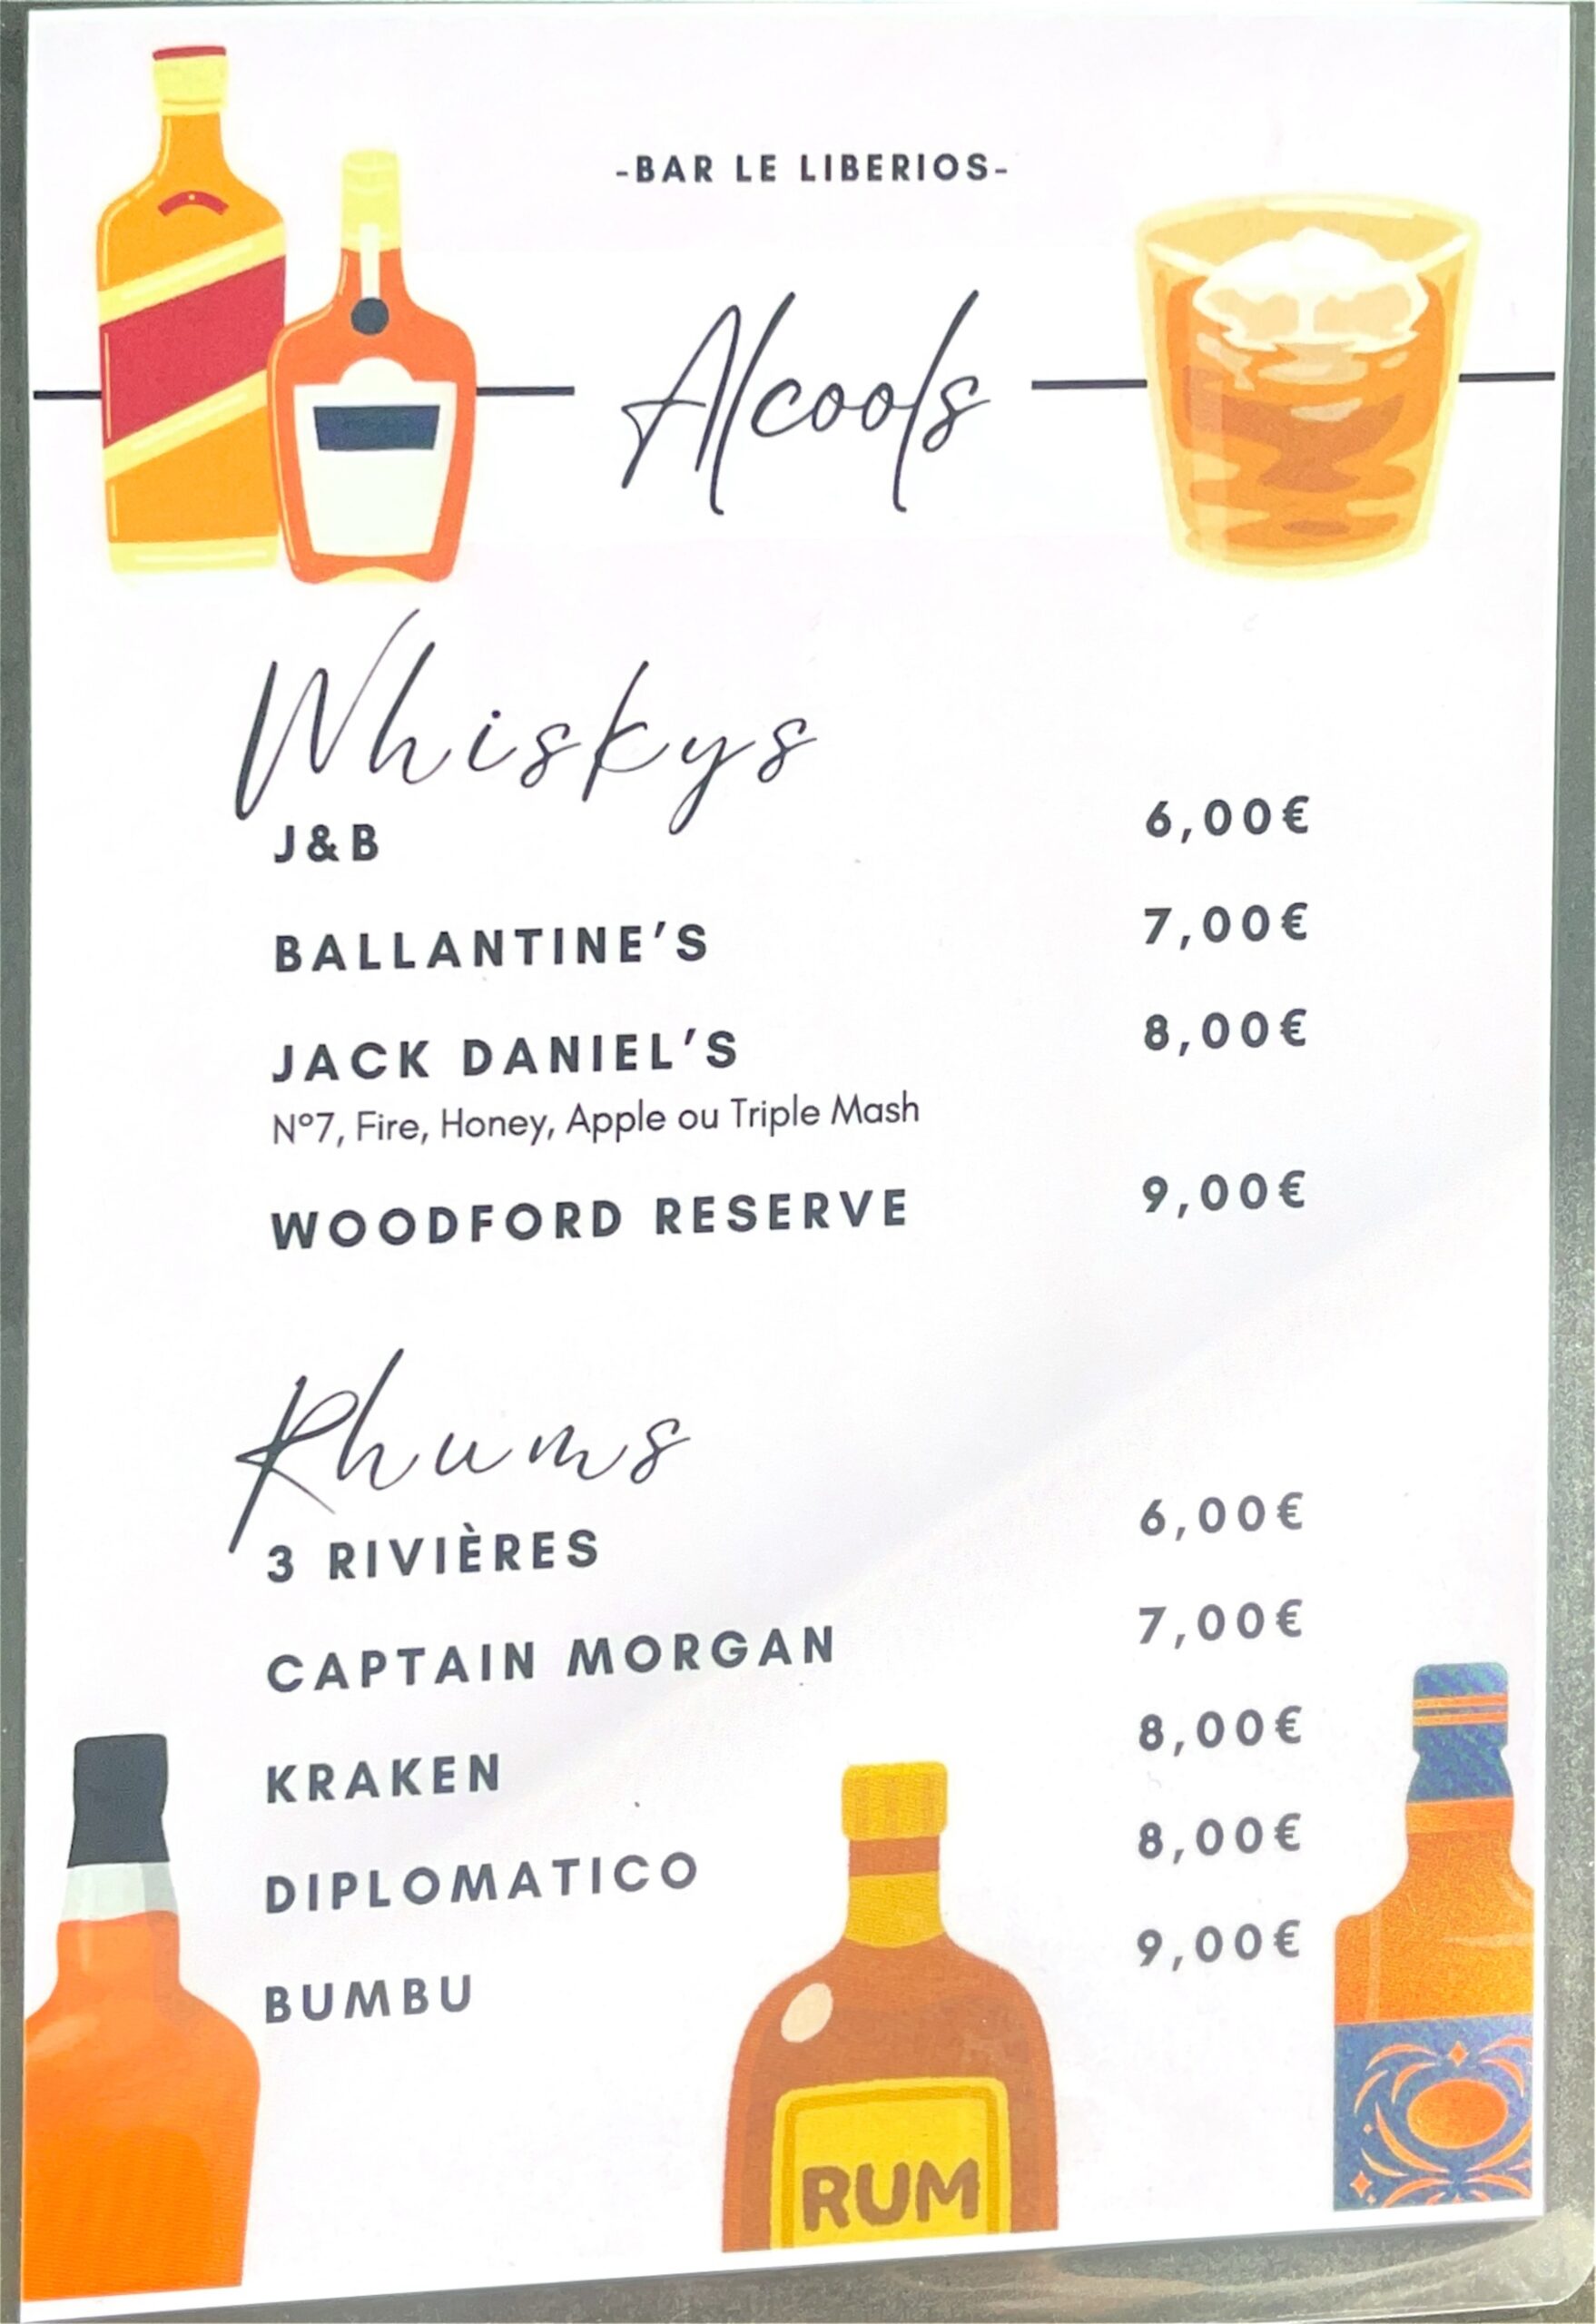 -BAR LE LIBERIOS-
Alcools
Whiskys
J&B 6,00€
BALLANTINE'S 7,00€
JACK DANIEL'S 8,00€
N°7, Fire, Honey, Apple ou Triple Mash
WOODFORD RESERVE 9,00€
Rhums
3 RIVIÈRES 6,00€
CAPTAIN MORGAN 7,00€
KRAKEN 8,00€
DIPLOMATICO 8,00€
BUMBU 9,00€
RUM